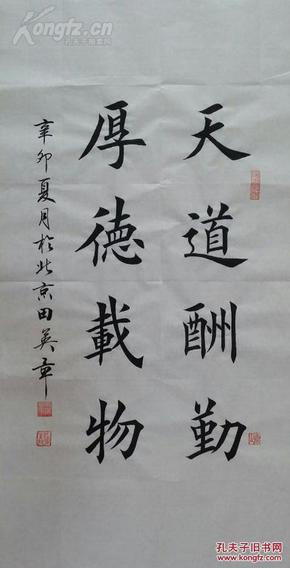 天道酬勤
厚德載物
辛卯夏月於北京田英章
孔夫子旧书网
KONGFZ.COM
孔夫子旧书网